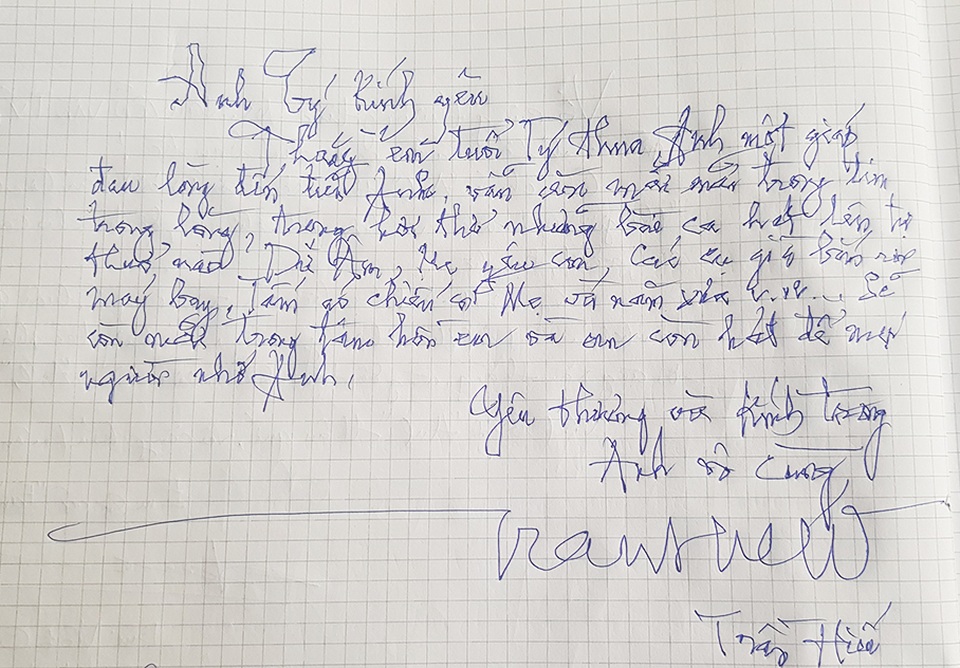 Anh Tý kính yêu
Thằng em tuổi Tý thua Anh một giáp
đau lòng đến tiễn Anh, vẫn còn mãi mãi trong tim
trong lòng, trong hơi thở những bài ca hát lên từ
thuở nào Dư Âm, Mẹ yêu con, Các cụ già bắn rơi
máy bay, Tấm áo chiến sĩ Mẹ vá năm xưa v.v... Sẽ
còn mãi trong tâm hồn em và em còn hát để mọi
người nhớ Anh.
Yêu thương và kính trọng
Anh vô cùng
Tranhieu
Trần Hiếu